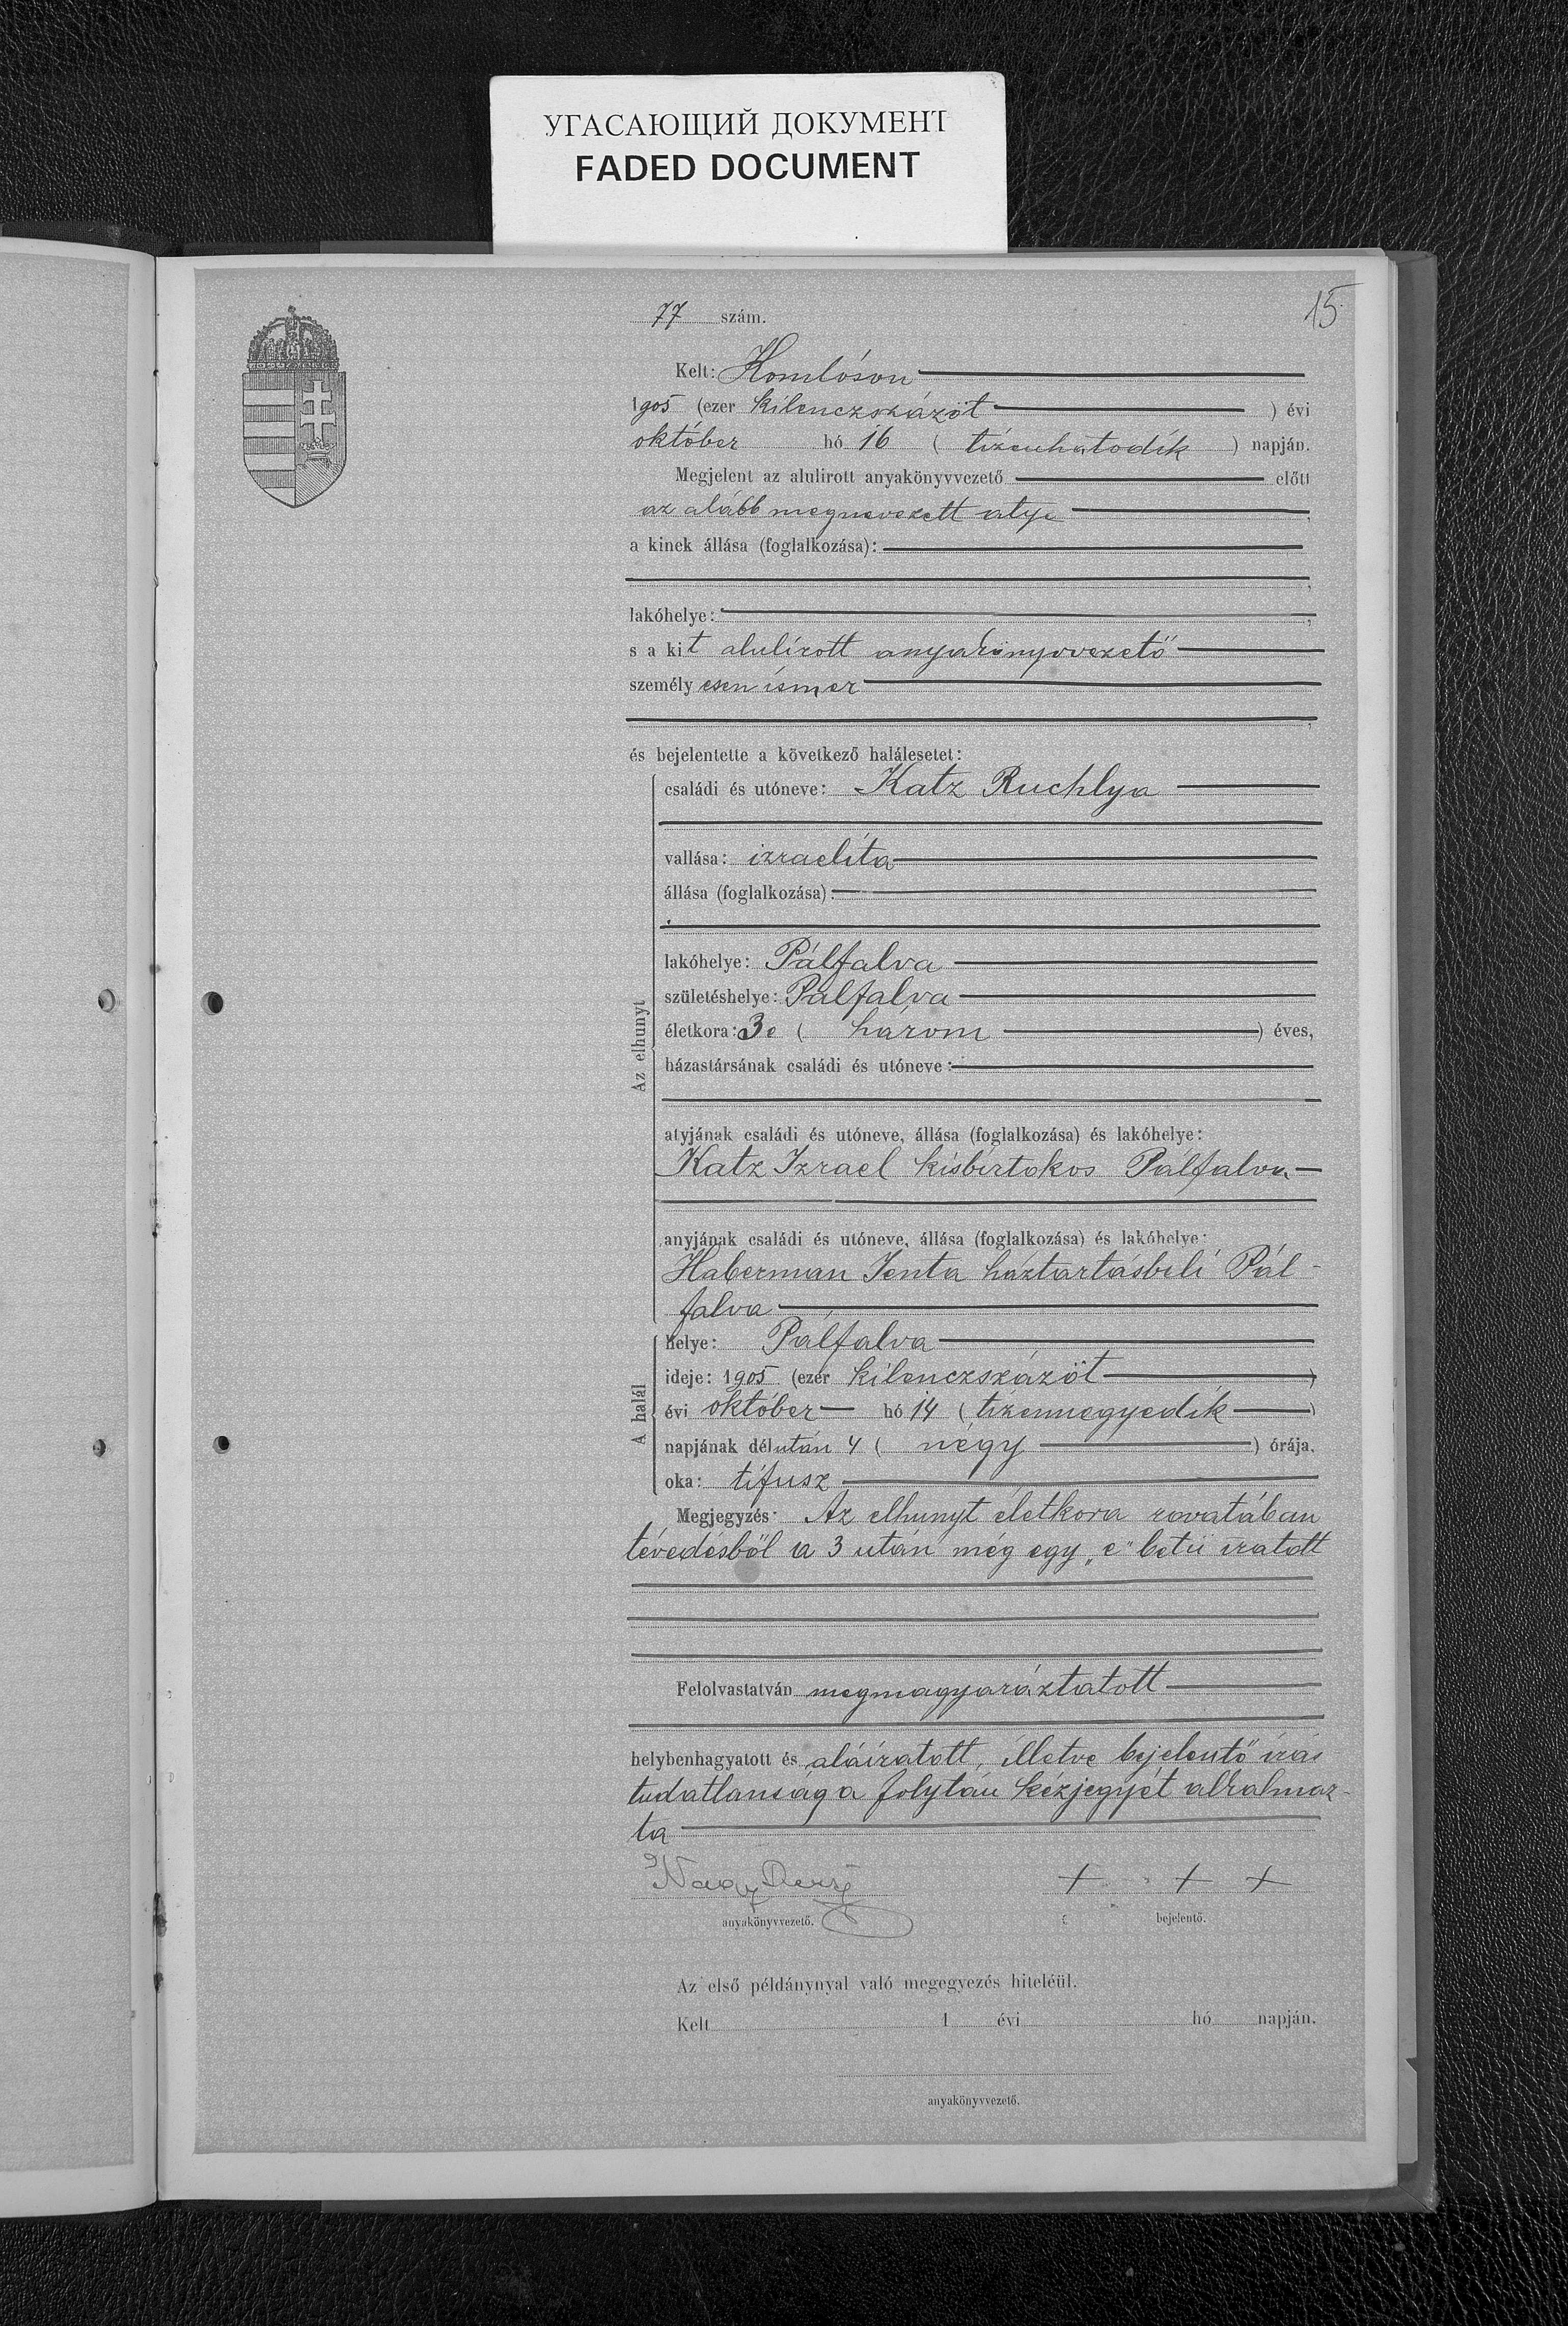 УГАСАЮЩИЙ ДОКУМЕНТ
FADED DOCUMENT
15.
77 szám.
Kelt: Komlóson
1905 (ezer kilenczszázöt ) évi
október hó 16 ( tizenhatodik ) napján.
Megjelent az alulirott anyakönyvvezető előtt
az alább megnevezett atyja ,
a kinek állása (foglalkozása):
lakóhelye: ,
s a kit alulírott anyakönyvvezető
személyesen ismer
;
és bejelentette a következő halálesetet:
Az elhunyt
családi és utóneve: Katz Ruchlya
vallása: izraelita
állása (foglalkozása):
lakóhelye: Pálfalva
születéshelye: Pálfalva
életkora: 3e ( három ) éves,
házastársának családi és utóneve:
atyjának családi és utóneve, állása (foglalkozása) és lakóhelye:
Katz Izrael kisbirtokos Pálfalva
anyjának családi és utóneve, állása (foglalkozása) és lakóhelye:
Haberman Jenta háztartásbeli Pál-
falva
A halál
helye: Pálfalva
ideje: 1905 (ezer kilenczszázöt )
évi október hó 14 ( tizennegyedik )
napjának délután 4 ( négy ) órája,
oka: tifusz
Megjegyzés: Az elhunyt életkora rovatában
tévedésből a 3 után még egy „e" betű iratott
Felolvastatván megmagyaráztatott
helybenhagyatott és aláiratott, illetve bejelentő írás
tudatlansága folytán kézjegyét alkalmaz-
ta
Nagy
+ + +
anyakönyvvezető.
bejelentő.
Az első példánynyal való megegyezés hiteléül.
Kelt 1 évi hó napján.
anyakönyvvezető.